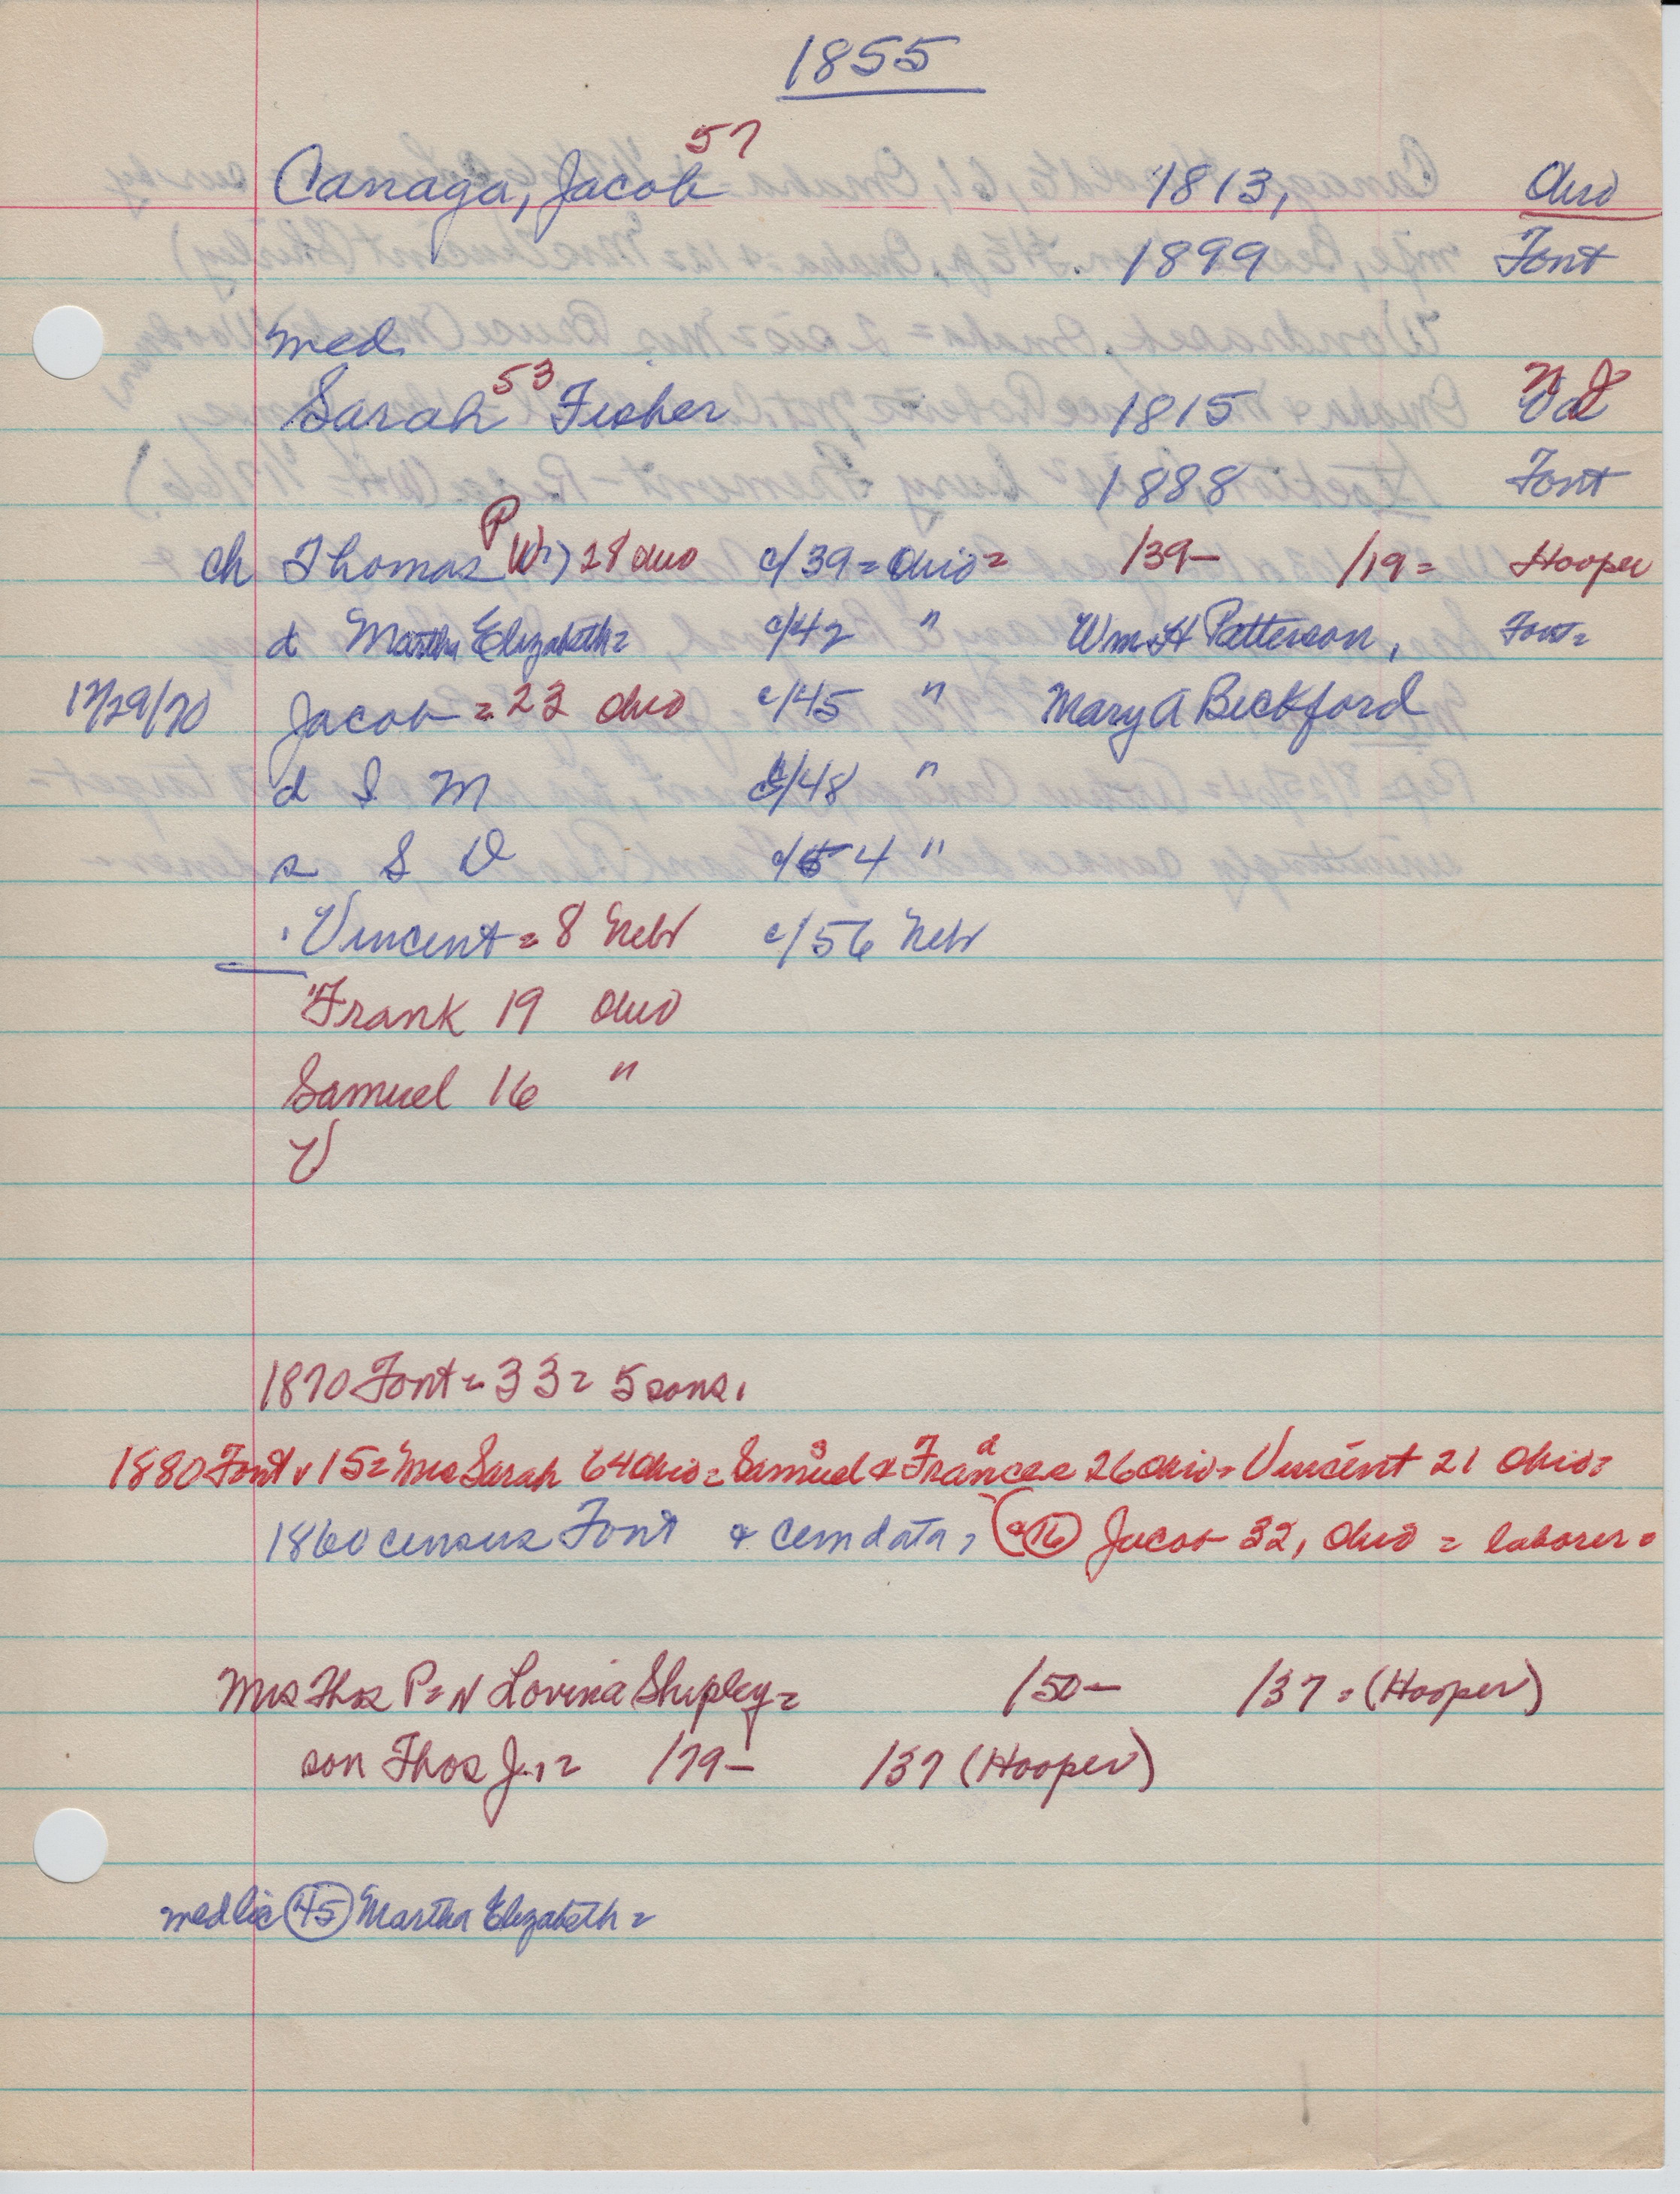 1855
57
Canaga, Jacob 1813, Ohio
1899 Font
med.
53 N J
Sarah Fisher 1815 Va
1888 Font
ch Thomas P W) 28 Ohio c/39 = Ohio = /39 — /19 = Hooper
d Martha Elizabeth = c/42 " Wm H Patterson, Font =
12/29/70 Jacob = 23 Ohio c/45 " Mary A Beckford
d S M c/48 "
s S D c/54 "
Vincent = 8 Nebr c/56 Nebr
Frank 19 Ohio
Samuel 16 "
V
1870 Font = 33 = 5 sons.
1880 Font v 15 = Mrs Sarah 64 Ohio = Samuel s & Frances d 26 Ohio = Vincent 21 Ohio =
1860 census Font & cem data, (16) Jacob 32, Ohio = laborer =
Mrs Thos P = N Lovina Shipley = /50 — /37 = (Hooper)
son Thos Jr. = /79 — /37 (Hooper)
med lic (45) Martha Elizabeth =